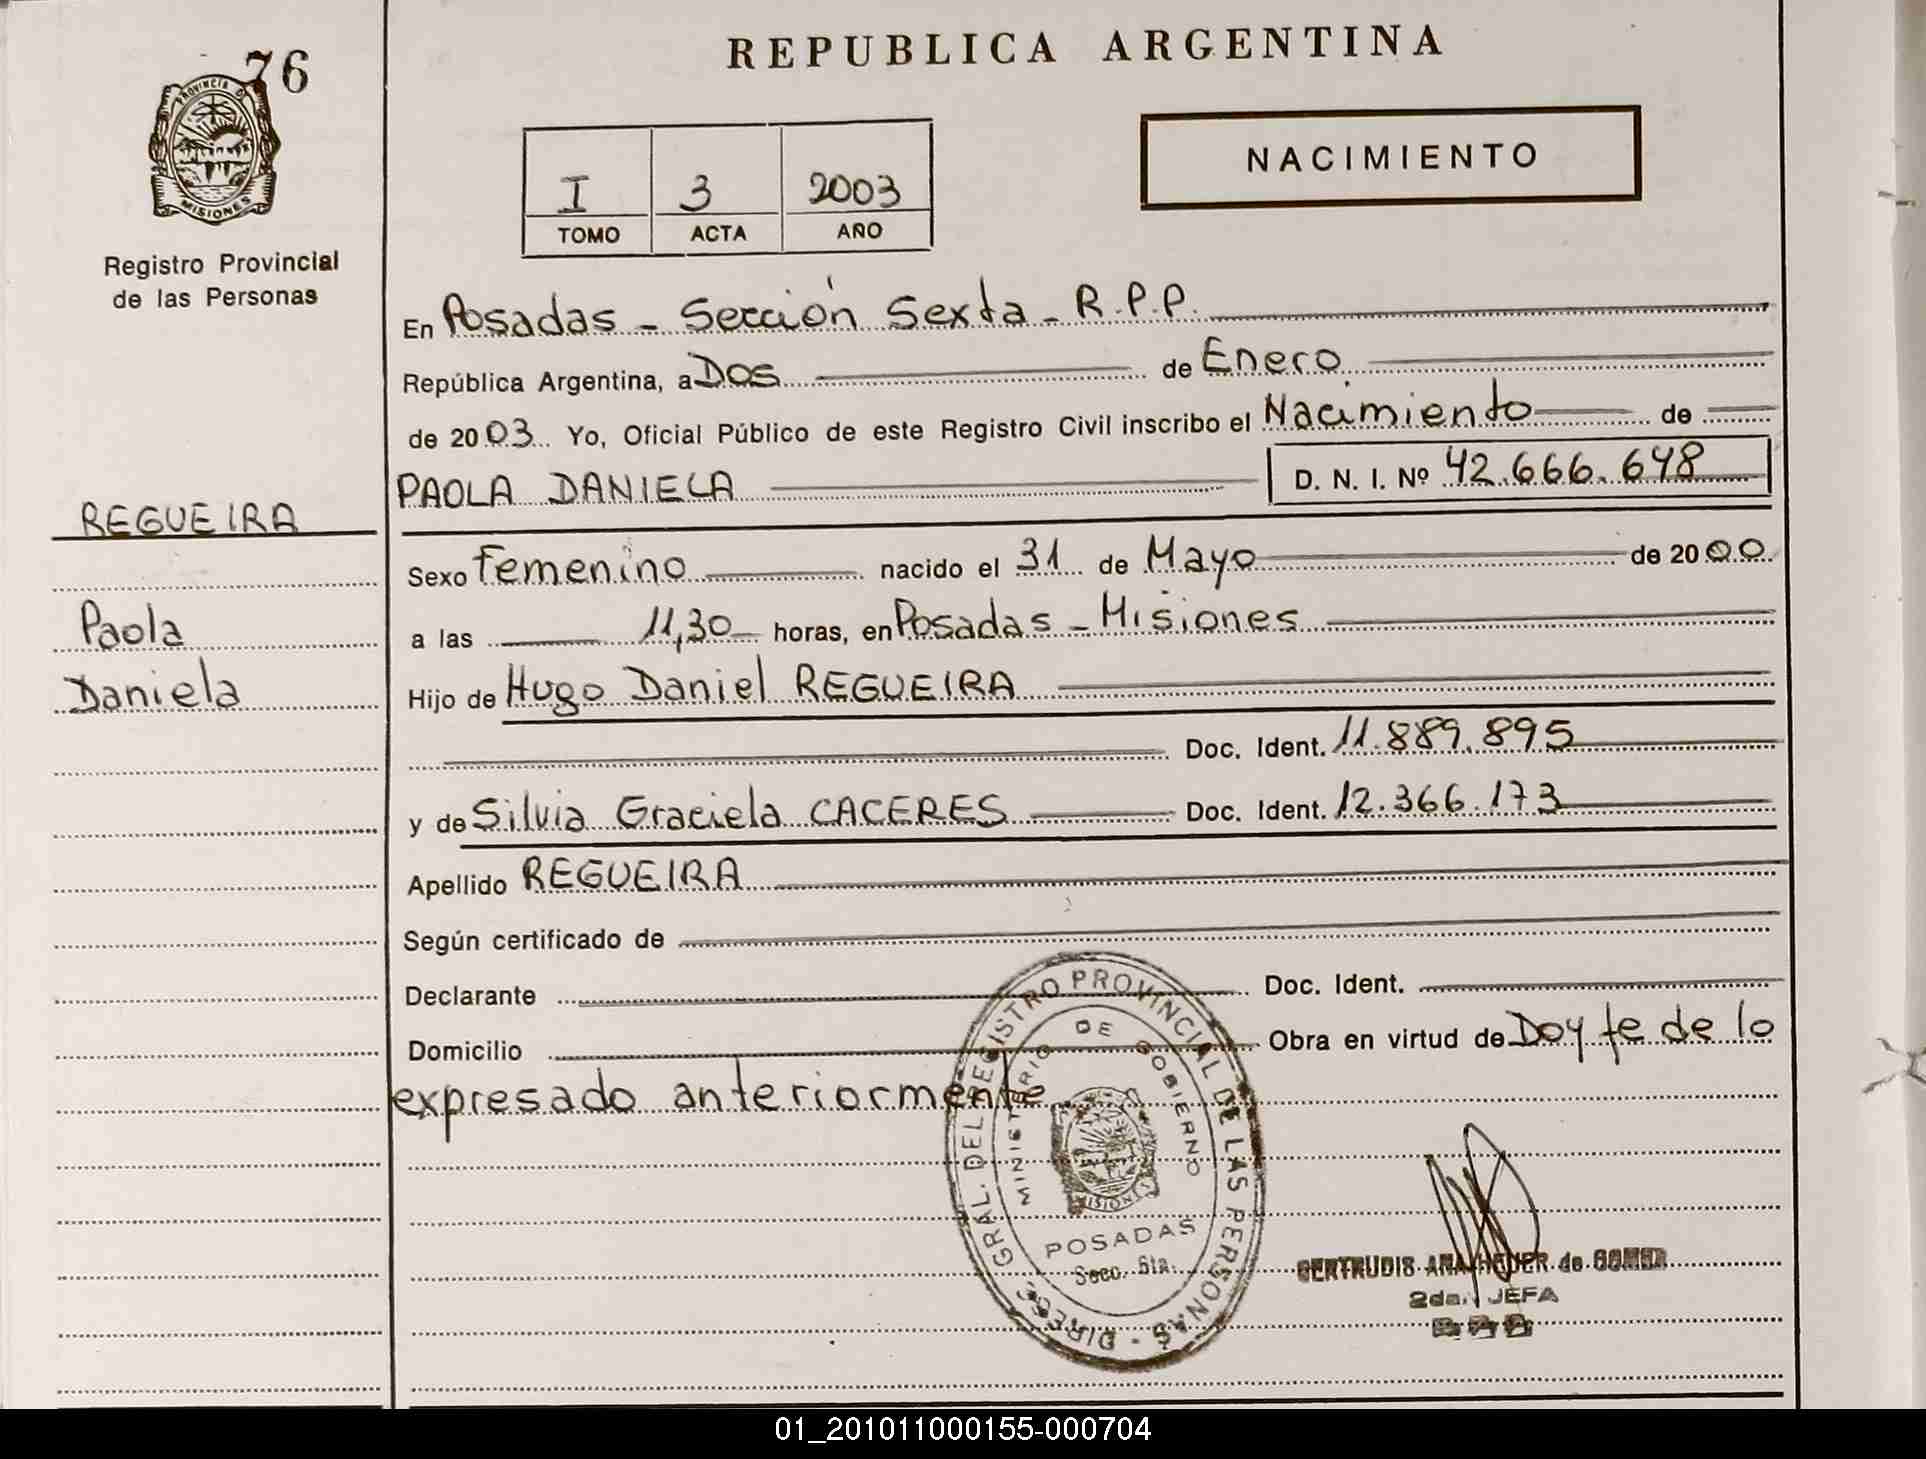 76
PROVINCIA D
MISIONES
Registro Provincial
de las Personas
REGUEIRA
Paola
Daniela
REPUBLICA ARGENTINA
I 3 2003
TOMO ACTA AÑO
NACIMIENTO
En Posadas - Sección Sexta - R.P.P.
República Argentina, a Dos de Enero
de 2003 Yo, Oficial Público de este Registro Civil inscribo el Nacimiento de
PAOLA DANIELA D. N. I. Nº 42.666.648
Sexo Femenino nacido el 31 de Mayo de 2000
a las 11,30 horas, en Posadas - Misiones
Hijo de Hugo Daniel REGUEIRA
Doc. Ident. 11.889.895
y de Silvia Graciela CACERES Doc. Ident. 12.366.173
Apellido REGUEIRA
Según certificado de
Declarante Doc. Ident.
Domicilio Obra en virtud de Doy fe de lo
expresado anteriormente
DIREC. GRAL. DEL REGISTRO PROVINCIAL DE LAS PERSONAS -
MINISTERIO DE GOBIERNO
MISIONES
POSADAS
Secc. 6ta.
GERTRUDIS ANA de
2da. JEFA
01_201011000155-000704